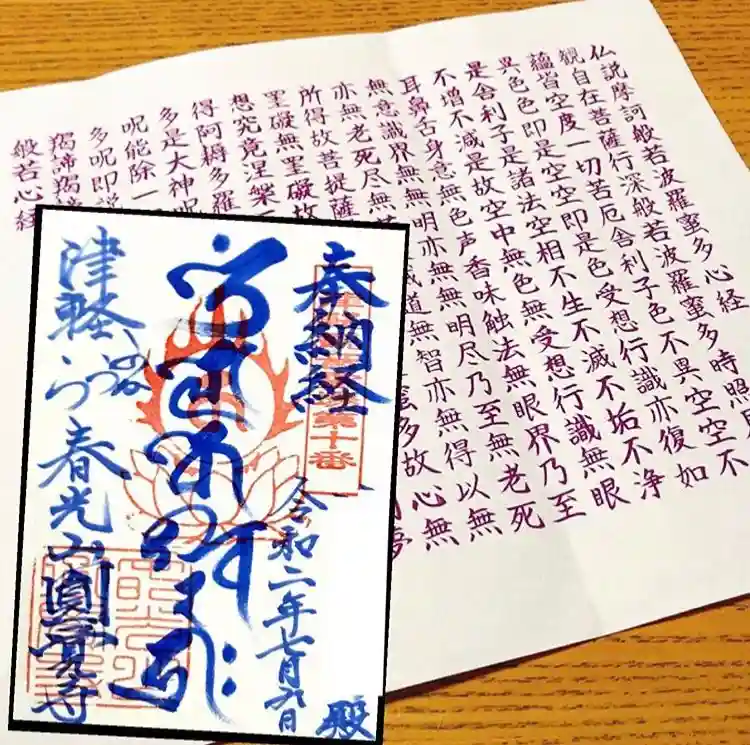 仏説摩訶般若波羅蜜多心経
観自在菩薩行深般若波羅蜜多時照
蘊皆空度一切苦厄舎利子色不異空空不
異色色即是空空即是色受想行識亦復如
是舎利子是諸法空相不生不滅不垢不浄
不増不減是故空中無色無受想行識無眼
耳鼻舌身意無色声香味触法無眼界乃至
無意識界無無明亦無無明尽乃至無老死
亦無老死尽無 道無智亦無得以無
所得故菩提薩 故心無
罣礙無罣礙故 夢
想究竟涅槃
得阿耨多羅
多是大神呪
呪能除一
多呪即説
羯諦羯諦
般若心経
奉納経
第十番
令和二年七月九日
殿
津軽ふかうら春光山圓覚寺